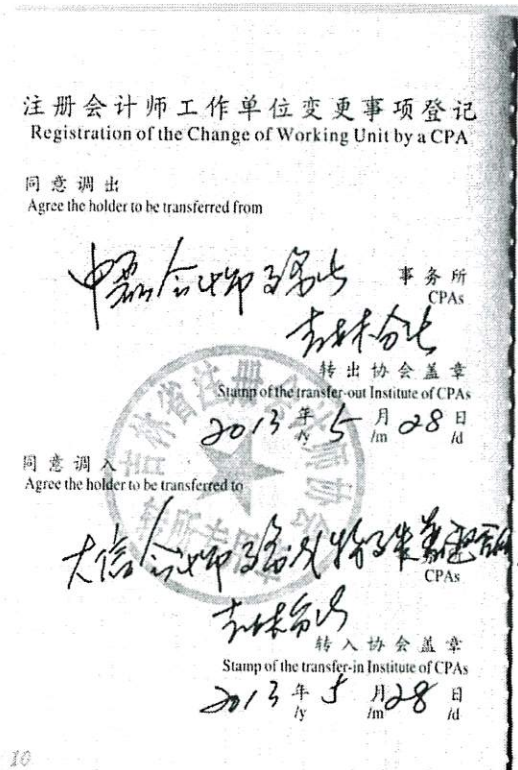 注册会计师工作单位变更事项登记
Registration of the Change of Working Unit by a CPA
同意调出
Agree the holder to be transferred from
中磊会计师事务所
事务所
CPAs
吉林分所
转出协会盖章
Stamp of the transfer-out Institute of CPAs
2013年5月28日
/y /m /d
吉林省注册会计师协会
转所专用章
同意调入
Agree the holder to be transferred to
大信会计师事务所(特殊普通合伙)
CPAs
吉林分所
转入协会盖章
Stamp of the transfer-in Institute of CPAs
2013年5月28日
/y /m /d
10